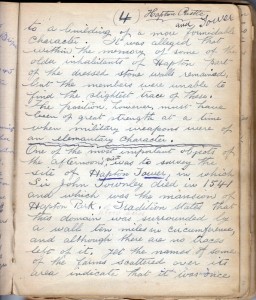 (4) Hapton Castle
and Tower
to a building of a more formidable
character. It was alleged that
within the memory of some of the
older inhabitants of Hapton part
of the dressed stone walls remained,
but the members were unable to
find the slightest trace of these.
The position however must have
been of great strength at a time
when military weapons were of
an elementary character.
One of the most important objects
of the afternoon was to survey the
site of Hapton Tower, in which
Sir John Townley died in 1541
and which was the mansion of
Hapton Park. Tradition states that
this domain was surrounded by
a wall ten miles in circumference,
and although there are no traces
left of it, yet the names of some
of the farms scattered over the
area indicate that it was once